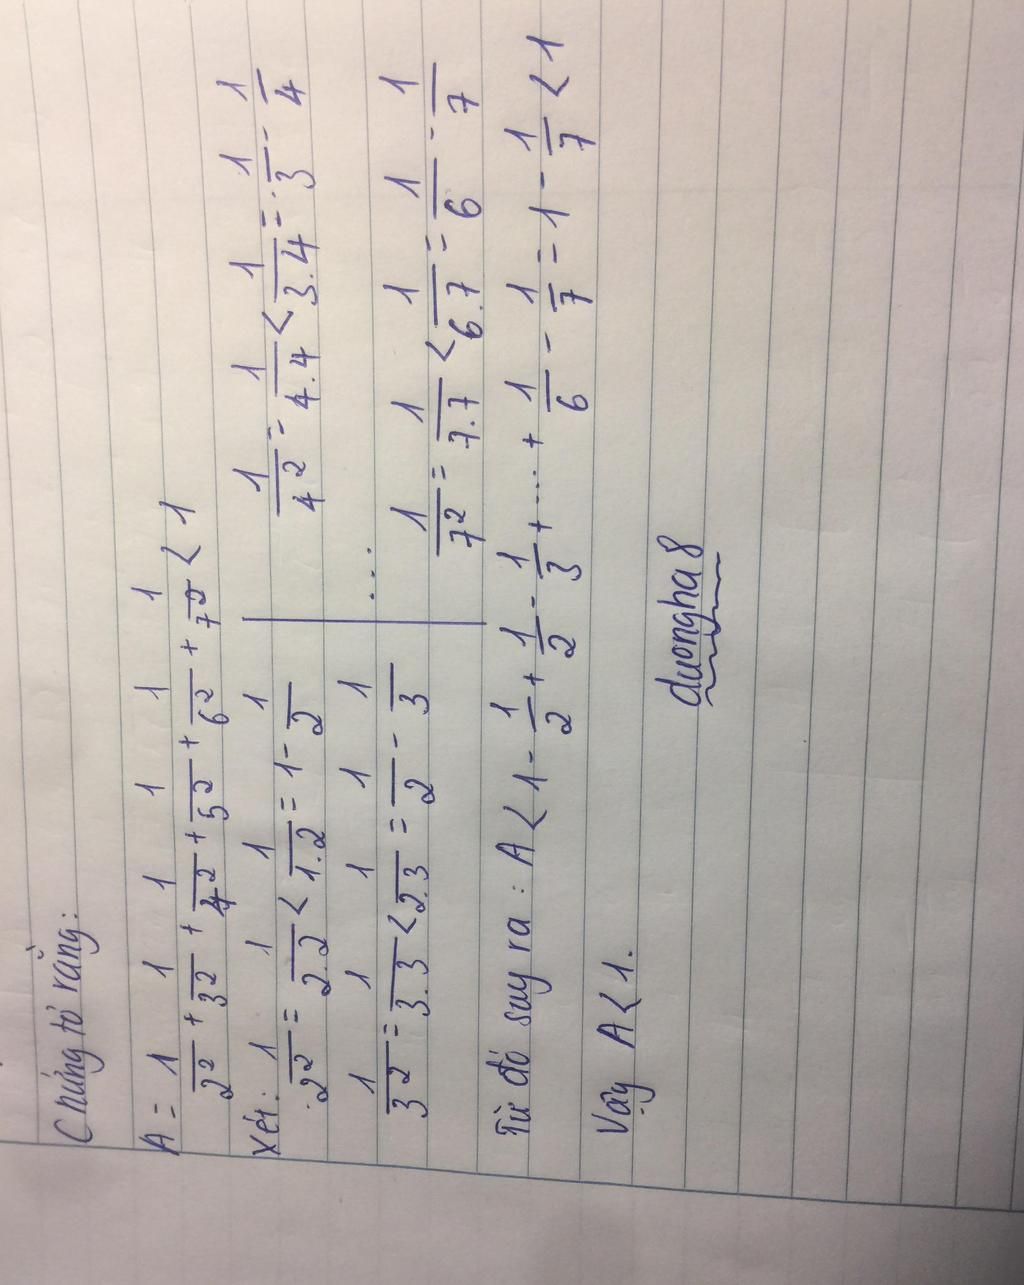 Chứng tỏ rằng:
A = 1/2² + 1/3² + 1/4² + 1/5² + 1/6² + 1/7² < 1
Xét: 1/2² = 1/2.2 < 1/1.2 = 1 - 1/2
1/3² = 1/3.3 < 1/2.3 = 1/2 - 1/3
1/4² = 1/4.4 < 1/3.4 = 1/3 - 1/4
...
1/7² = 1/7.7 < 1/6.7 = 1/6 - 1/7
Từ đó suy ra: A < 1 - 1/2 + 1/2 - 1/3 + ... + 1/6 - 1/7 = 1 - 1/7 < 1
Vậy A < 1.
duongha8